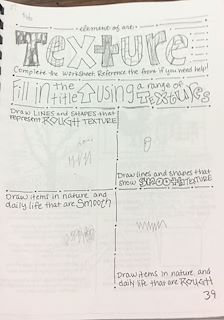 element of art:
Texture
Complete the worksheet. Reference the front if you need help!
Fill in the title using a range of textures
Draw LINES and SHAPES that
represent ROUGH TEXTURE
Draw lines and shapes that
show SMOOTH TEXTURE
Draw items in nature and
daily life that are SMOOTH
Draw items in nature and
daily life that are ROUGH
39